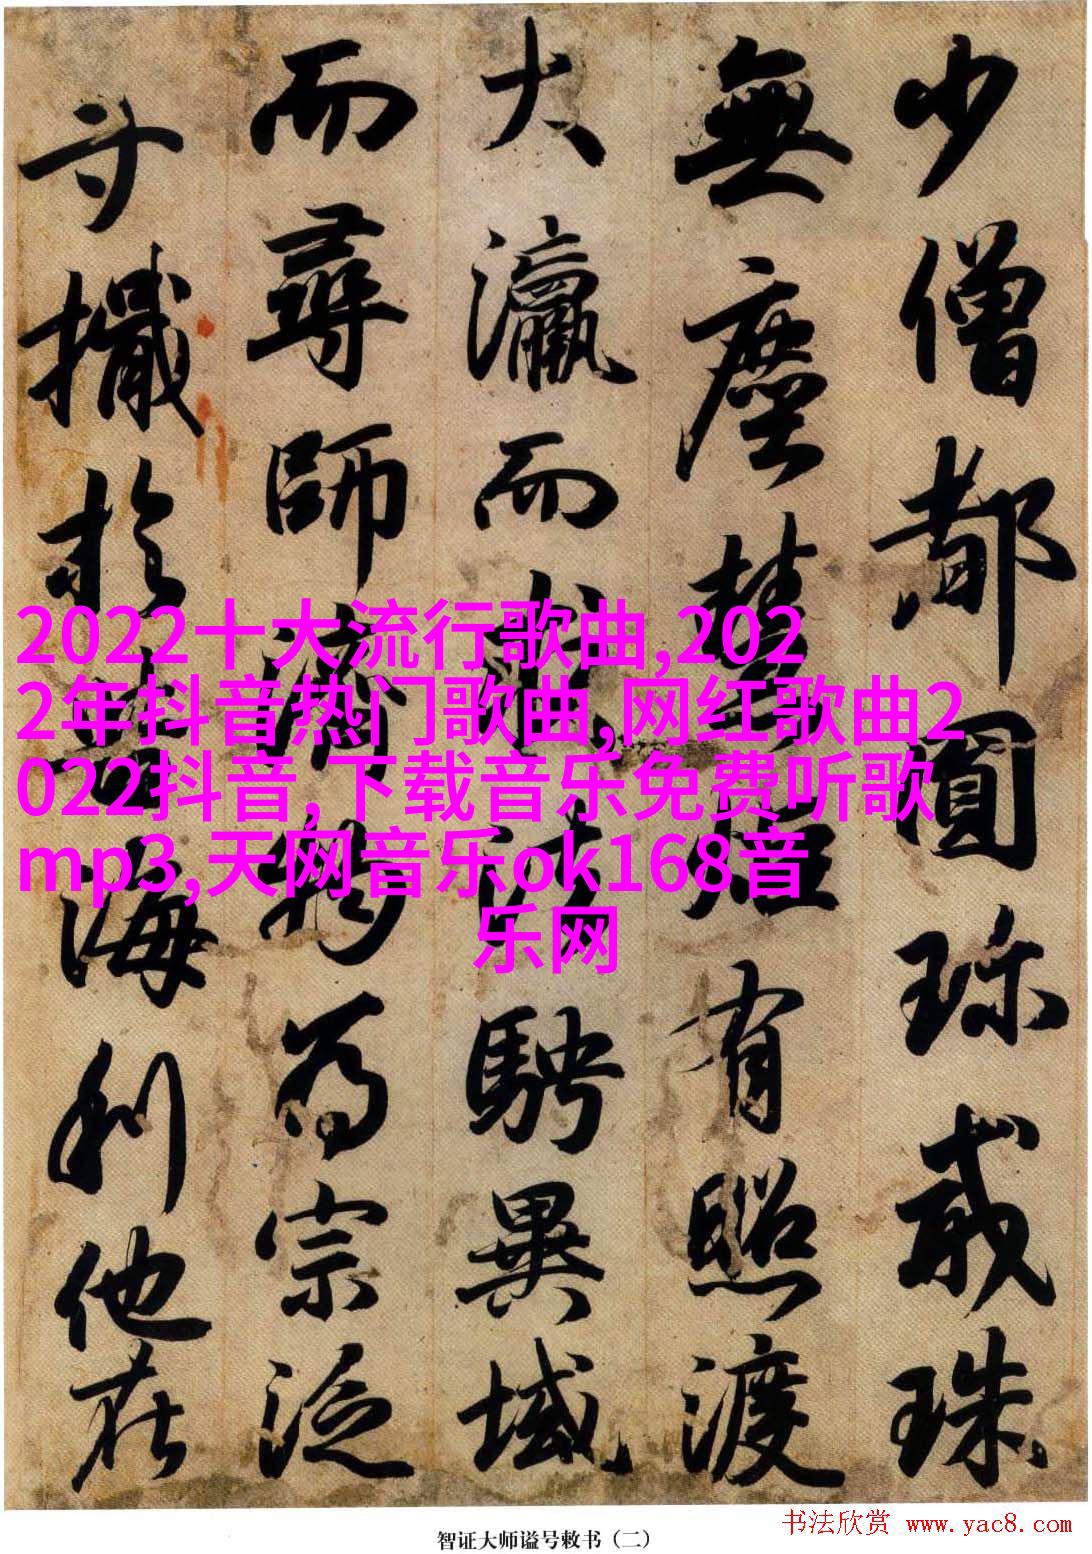 少僧都圓珍戒珠
無塵慧炬有照渡
大瀛而求法騁異域
而尋師濟物為宗泛
寸檝於苦海利他在
2022十大流行歌曲,202
2年抖音热门歌曲,网红歌曲2
022抖音,下载音乐免费听歌
mp3,天网音乐ok168音
乐网
智证大师谥号敕书（二）
书法欣赏 www.yac8.com